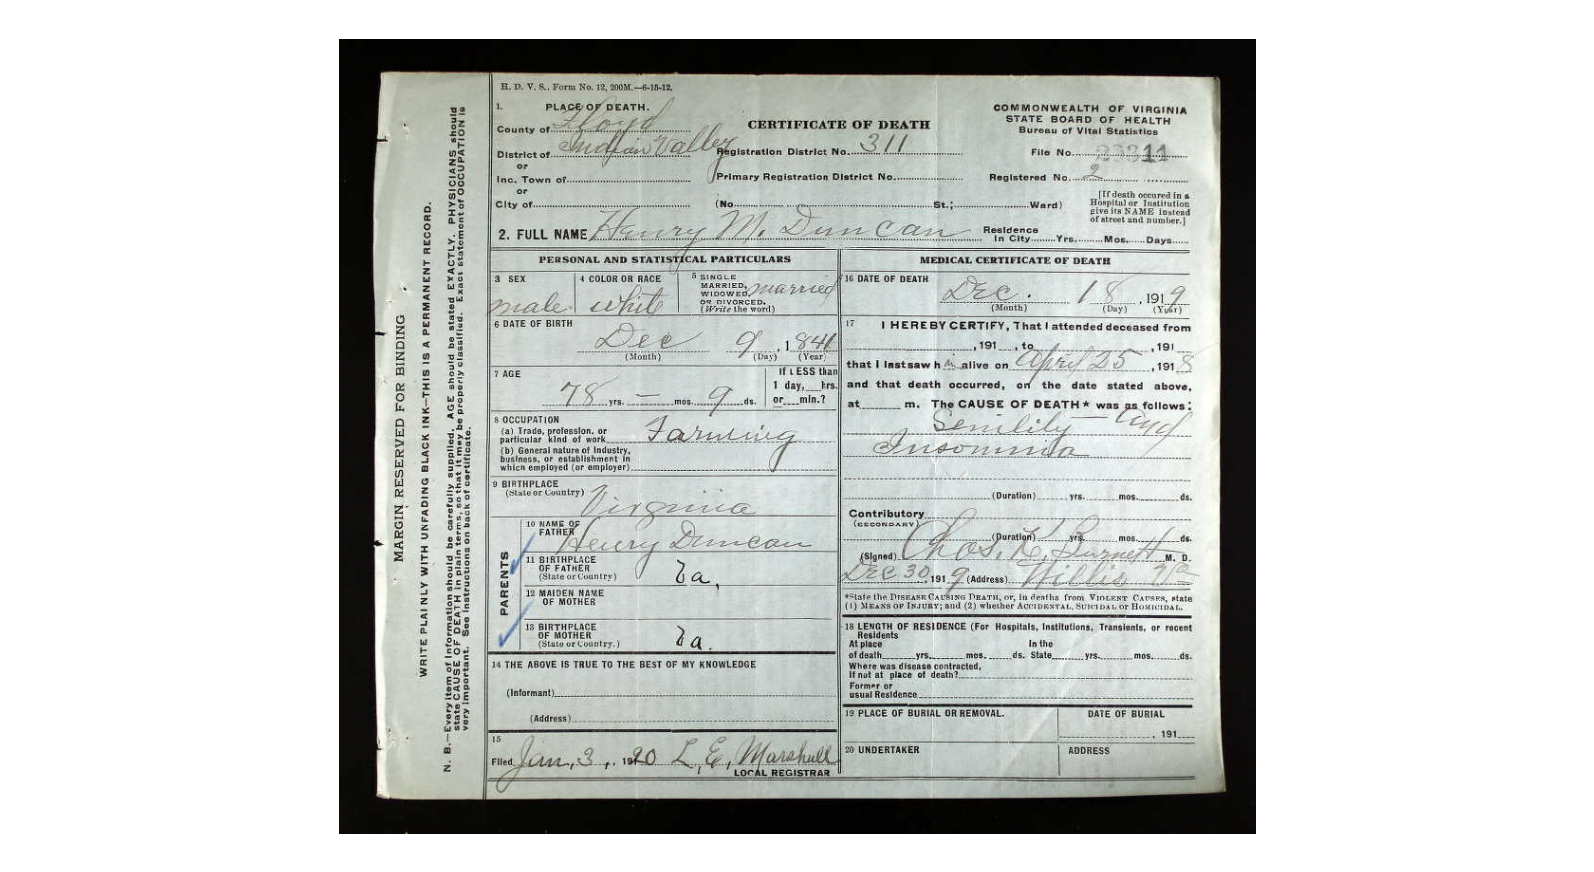 H. D. V. S., Form No. 12, 200M.—6-15-12.
1. PLACE OF DEATH.
County of Floyd
District of Indian Valley
or
Inc. Town of
or
City of
CERTIFICATE OF DEATH
Registration District No. 311
Primary Registration District No.
(No. St.; Ward)
COMMONWEALTH OF VIRGINIA
STATE BOARD OF HEALTH
Bureau of Vital Statistics
File No.
Registered No. 2
[If death occured in a
Hospital or Institution
give its NAME instead
of street and number.]
2. FULL NAME Henry M. Duncan
Residence
In City Yrs. Mos. Days
PERSONAL AND STATISTICAL PARTICULARS
3 SEX
male
4 COLOR OR RACE
white
5 SINGLE
MARRIED,
WIDOWED,
OR DIVORCED.
(Write the word)
married
6 DATE OF BIRTH
Dec 9, 1841
(Month) (Day) (Year)
7 AGE
78 yrs. — mos. 9 ds.
If LESS than
1 day, hrs.
or min.?
8 OCCUPATION
(a) Trade, profession, or
particular kind of work Farming
(b) General nature of Industry,
business, or establishment in
which employed (or employer)
9 BIRTHPLACE
(State or Country) Virginia
PARENTS
10 NAME OF
FATHER Henry Duncan
11 BIRTHPLACE
OF FATHER
(State or Country) Va,
12 MAIDEN NAME
OF MOTHER
13 BIRTHPLACE
OF MOTHER
(State or Country.) Va.
14 THE ABOVE IS TRUE TO THE BEST OF MY KNOWLEDGE
(Informant)
(Address)
15
Filed Jan, 3, 1920 L, E, Marshall
LOCAL REGISTRAR
MEDICAL CERTIFICATE OF DEATH
16 DATE OF DEATH
Dec. 18, 1919
(Month) (Day) (Year)
17 I HEREBY CERTIFY, That I attended deceased from
, 191 , to , 191
that I last saw him alive on April 25, 1918
and that death occurred, on the date stated above,
at m. The CAUSE OF DEATH* was as follows:
Senility — and
Insomnia
(Duration) yrs. mos. ds.
Contributory
(SECONDARY)
(Duration) yrs. mos. ds.
(Signed) Chas. K. Burnett M. D.
Dec 30, 1919 (Address) Willis Va
*State the DISEASE CAUSING DEATH, or, in deaths from VIOLENT CAUSES, state
(1) MEANS OF INJURY; and (2) whether ACCIDENTAL, SUICIDAL or HOMICIDAL.
18 LENGTH OF RESIDENCE (For Hospitals, Institutions, Transients, or recent
Residents
At place In the
of death yrs. mos. ds. State yrs. mos. ds.
Where was disease contracted,
If not at place of death?
Former or
usual Residence
19 PLACE OF BURIAL OR REMOVAL.
DATE OF BURIAL
, 191
20 UNDERTAKER
ADDRESS
MARGIN RESERVED FOR BINDING
WRITE PLAINLY WITH UNFADING BLACK INK—THIS IS A PERMANENT RECORD.
N. B.—Every item of information should be carefully supplied. AGE should be stated EXACTLY. PHYSICIANS should
state CAUSE OF DEATH in plain terms, so that it may be properly classified. Exact statement of OCCUPATION is
very important. See instructions on back of certificate.